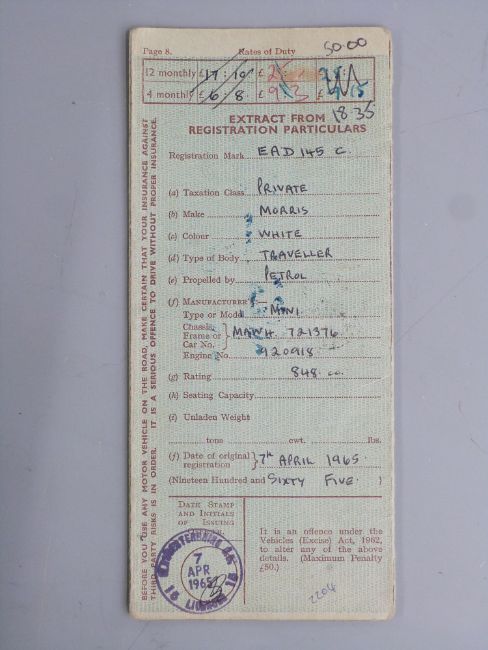 Page 8. Rates of Duty 50.00
12 monthly £17 : 10 £
4 monthly £6 : 8 £ 9.3 £ 15
18.35
EXTRACT FROM
REGISTRATION PARTICULARS
Registration Mark EAD 145 C.
(a) Taxation Class PRIVATE
(b) Make MORRIS
(c) Colour WHITE
(d) Type of Body TRAVELLER
(e) Propelled by PETROL
(f) MANUFACTURER'S—
Type or Model MINI
Chassis,
Frame or } MAWH 721376
Car No.
Engine No. 920918
(g) Rating 848 cc.
(h) Seating Capacity
(i) Unladen Weight
tons cwt. lbs.
(j) Date of original } 7th APRIL 1965.
registration
(Nineteen Hundred and SIXTY FIVE. )
DATE STAMP
AND INITIALS
OF ISSUING
7
APR
1965
16 LICENCES
It is an offence under the
Vehicles (Excise) Act, 1962,
to alter any of the above
details. (Maximum Penalty
£50.)
2204
BEFORE YOU USE ANY MOTOR VEHICLE ON THE ROAD, MAKE CERTAIN THAT YOUR INSURANCE AGAINST
THIRD PARTY RISKS IS IN ORDER. IT IS A SERIOUS OFFENCE TO DRIVE WITHOUT PROPER INSURANCE.